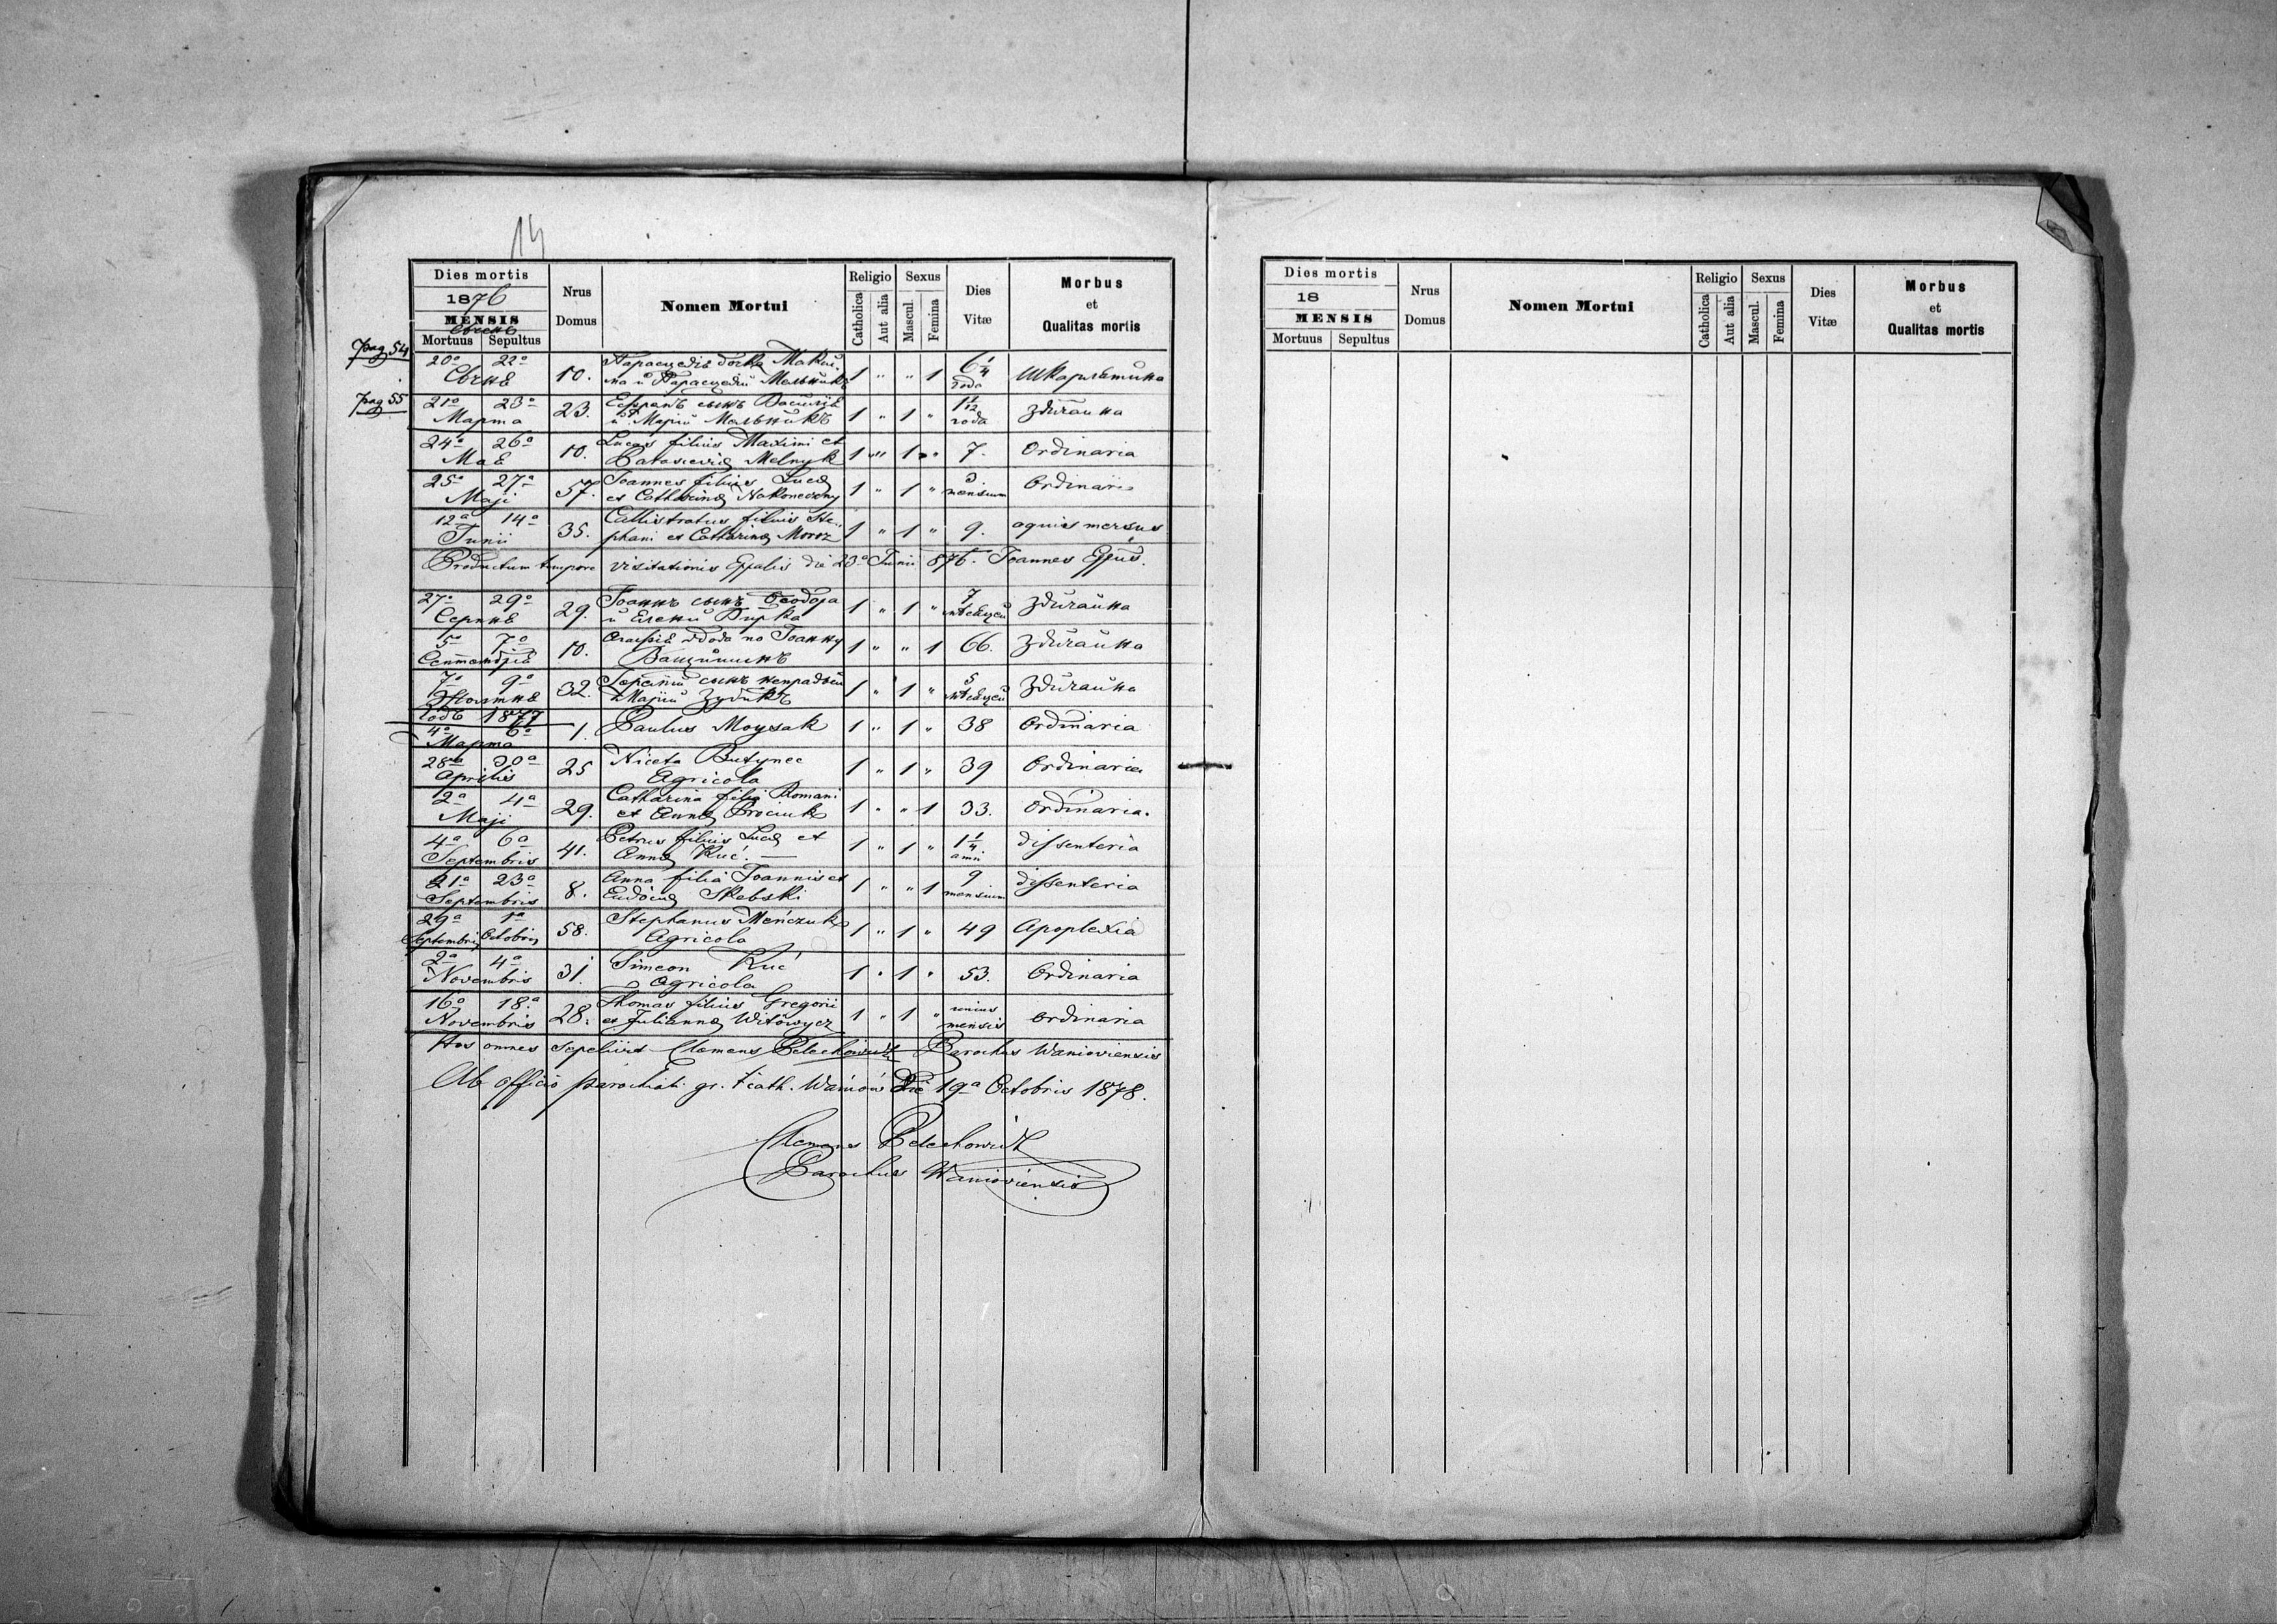 14
Dies mortis
1876
MENSIS
Свчнь
Mortuus Sepultus
Nrus Domus
Nomen Mortui
Religio
Catholica Aut alia
Sexus
Mascul. Femina
Dies Vitæ
Morbus
et
Qualitas mortis
pag 54
20а 22а Свчнѣ 10. Параскевія дочка Макси-
ма и Параскевіи Мельникъ 1 " " 1 6 1/4 года шкарлятина
pag 55
21а 23а Марта 23. сынъ Василія
и Маріи Мельникъ 1 " 1 " 1 1/12 года звичайна
24а 26а Маѣ 10. Lucas filius Maximi et
Parasceviæ Melnyk 1 " 1 " 7. Ordinaria
25a 27a Maji 57. Joannes filius Lucæ
et Catharinæ Nakoneczny 1 " 1 " 3 mensium Ordinaria
12a 14a Junii 35. Callistratus filius Ste-
phani et Catharinæ Moroz 1 " 1 " 9. aquis mersus
Productum tempore visitationis Eppalis die 23a Junii 876. Joannes Eppus.
27а 29а Серпнѣ 29. Іоаннъ сынъ Ѳеодора
и Елены 1 " 1 " 7 мѣсяцей звичайна
5а 7а Септемврія 10. вдова по Іоанну
Ващишинъ 1 " " 1 66. звичайна
7а 9а Жолтнѣ 32. сынъ
Маріи Зубикъ 1 " 1 " 5 мѣсяцей звичайна
Годъ 1877
4а 6а Марта 1. Paulus Moysak 1 " 1 " 38 Ordinaria
28a 30a Aprilis 25 Niceta Butynec
Agricola 1 " 1 " 39 Ordinaria
2a 4a Maji 29. Catharina filia Romani
et Annæ Prociuk 1 " " 1 33. Ordinaria.
4a 6a Septembris 41. Petrus filius Lucæ et
Annæ Kuć. 1 " 1 " 1 1/4 anni dissenteria
21a 23a Septembris 8. Anna filia Joannis et
Eudociæ Skebski 1 " " 1 9 mensium dissenteria
29a Septembris 1a Octobris 58. Stephanus Meńczuk
Agricola 1 " 1 " 49 Apoplexia
2a 4a Novembris 31. Simeon Kuć
Agricola 1 " 1 " 53. Ordinaria
16a 18a Novembris 28. Thomas filius Gregorii
et Juliannæ Witowycz 1 " 1 " unius mensis Ordinaria
Hos omnes sepelivit Clemens Pelechowicz Parochus Wanioviensis
Ab officio parochiali gr. cath. Waniów Die 19a Octobris 1878.
Clemens Pelechowicz
Parochus Wanioviensis
Dies mortis
18
MENSIS
Mortuus Sepultus
Nrus Domus
Nomen Mortui
Religio
Catholica Aut alia
Sexus
Mascul. Femina
Dies Vitæ
Morbus
et
Qualitas mortis